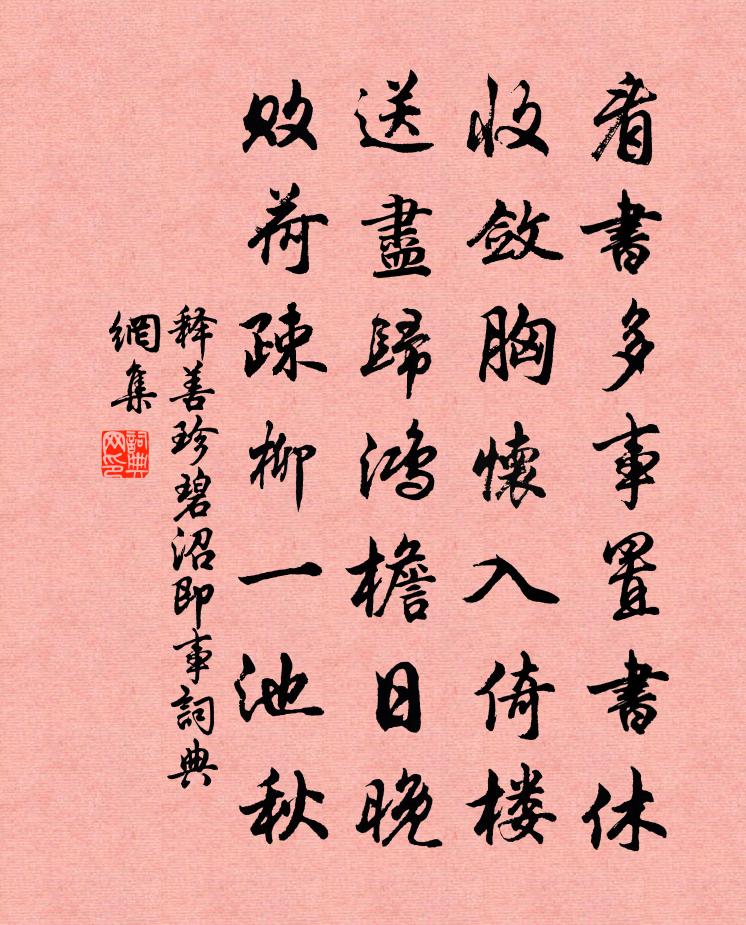 看書多事置書休
收斂胸懷入倚楼
送盡歸鴻檐日晚
敗荷疎柳一池秋
释善珍碧沼即事詞典
網集
詞典
网印